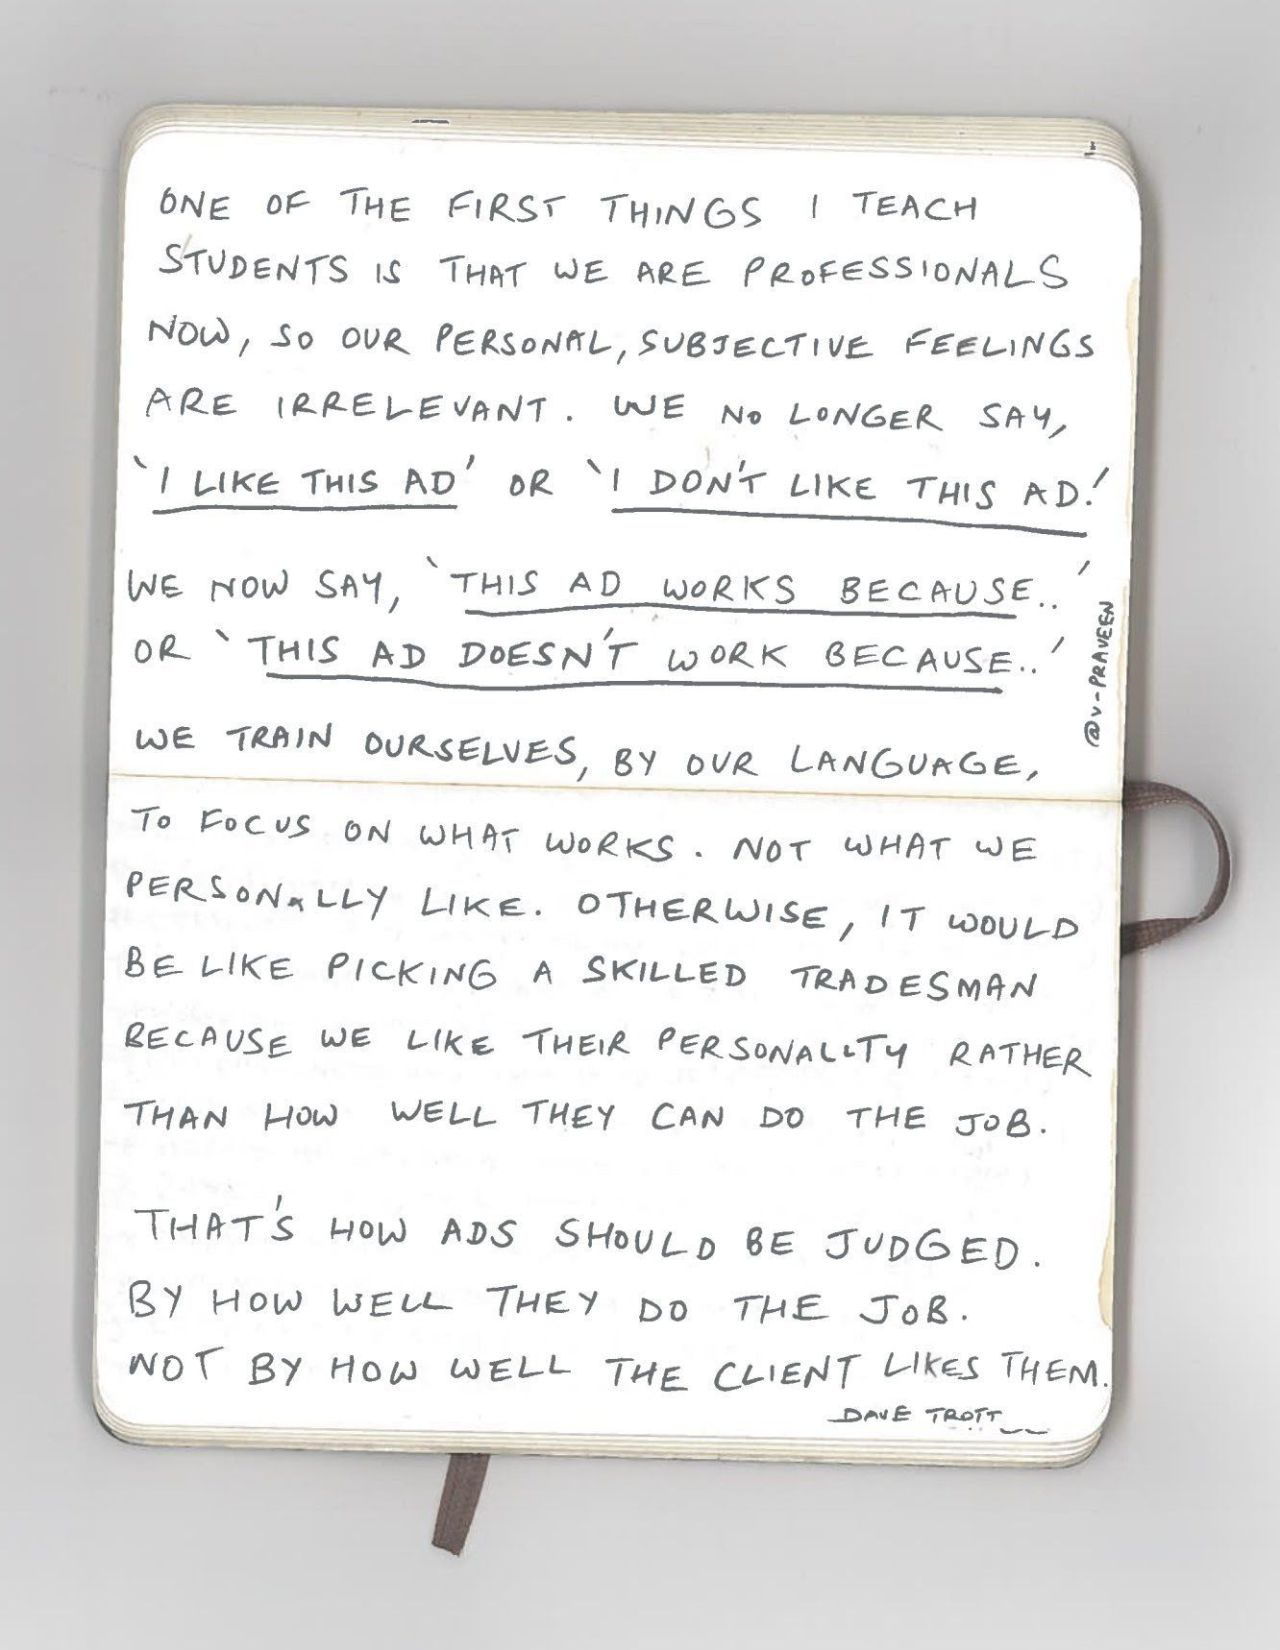 ONE OF THE FIRST THINGS I TEACH
STUDENTS IS THAT WE ARE PROFESSIONALS
NOW, SO OUR PERSONAL, SUBJECTIVE FEELINGS
ARE IRRELEVANT. WE NO LONGER SAY,
'I LIKE THIS AD' OR 'I DON'T LIKE THIS AD.'
WE NOW SAY, 'THIS AD WORKS BECAUSE..'
OR 'THIS AD DOESN'T WORK BECAUSE..'
WE TRAIN OURSELVES, BY OUR LANGUAGE,
TO FOCUS ON WHAT WORKS. NOT WHAT WE
PERSONALLY LIKE. OTHERWISE, IT WOULD
BE LIKE PICKING A SKILLED TRADESMAN
BECAUSE WE LIKE THEIR PERSONALITY RATHER
THAN HOW WELL THEY CAN DO THE JOB.
THAT'S HOW ADS SHOULD BE JUDGED.
BY HOW WELL THEY DO THE JOB.
NOT BY HOW WELL THE CLIENT LIKES THEM.
DAVE TROTT
@V-PRAVEEN